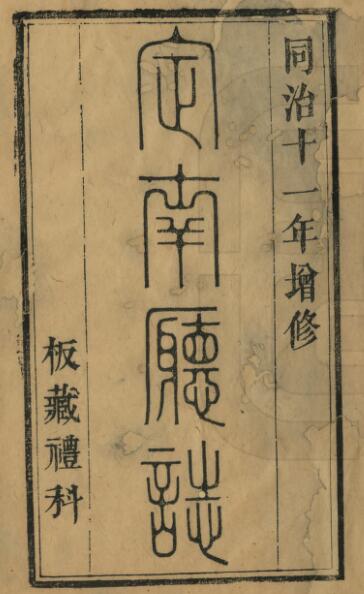 同治十一年增修
定南廳誌
板藏禮科